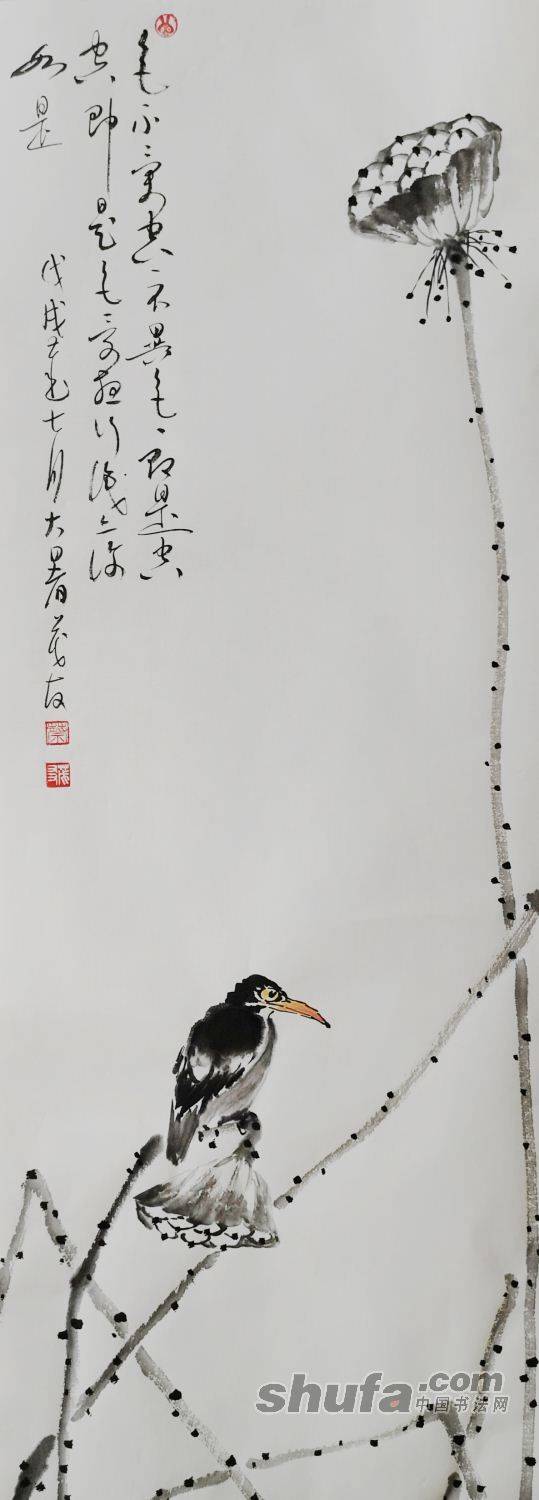 色不異空々不異色々即是空
空即是色々受想行識亦復
如是
戊戌七月大暑茂友
shufa.com
中国书法网